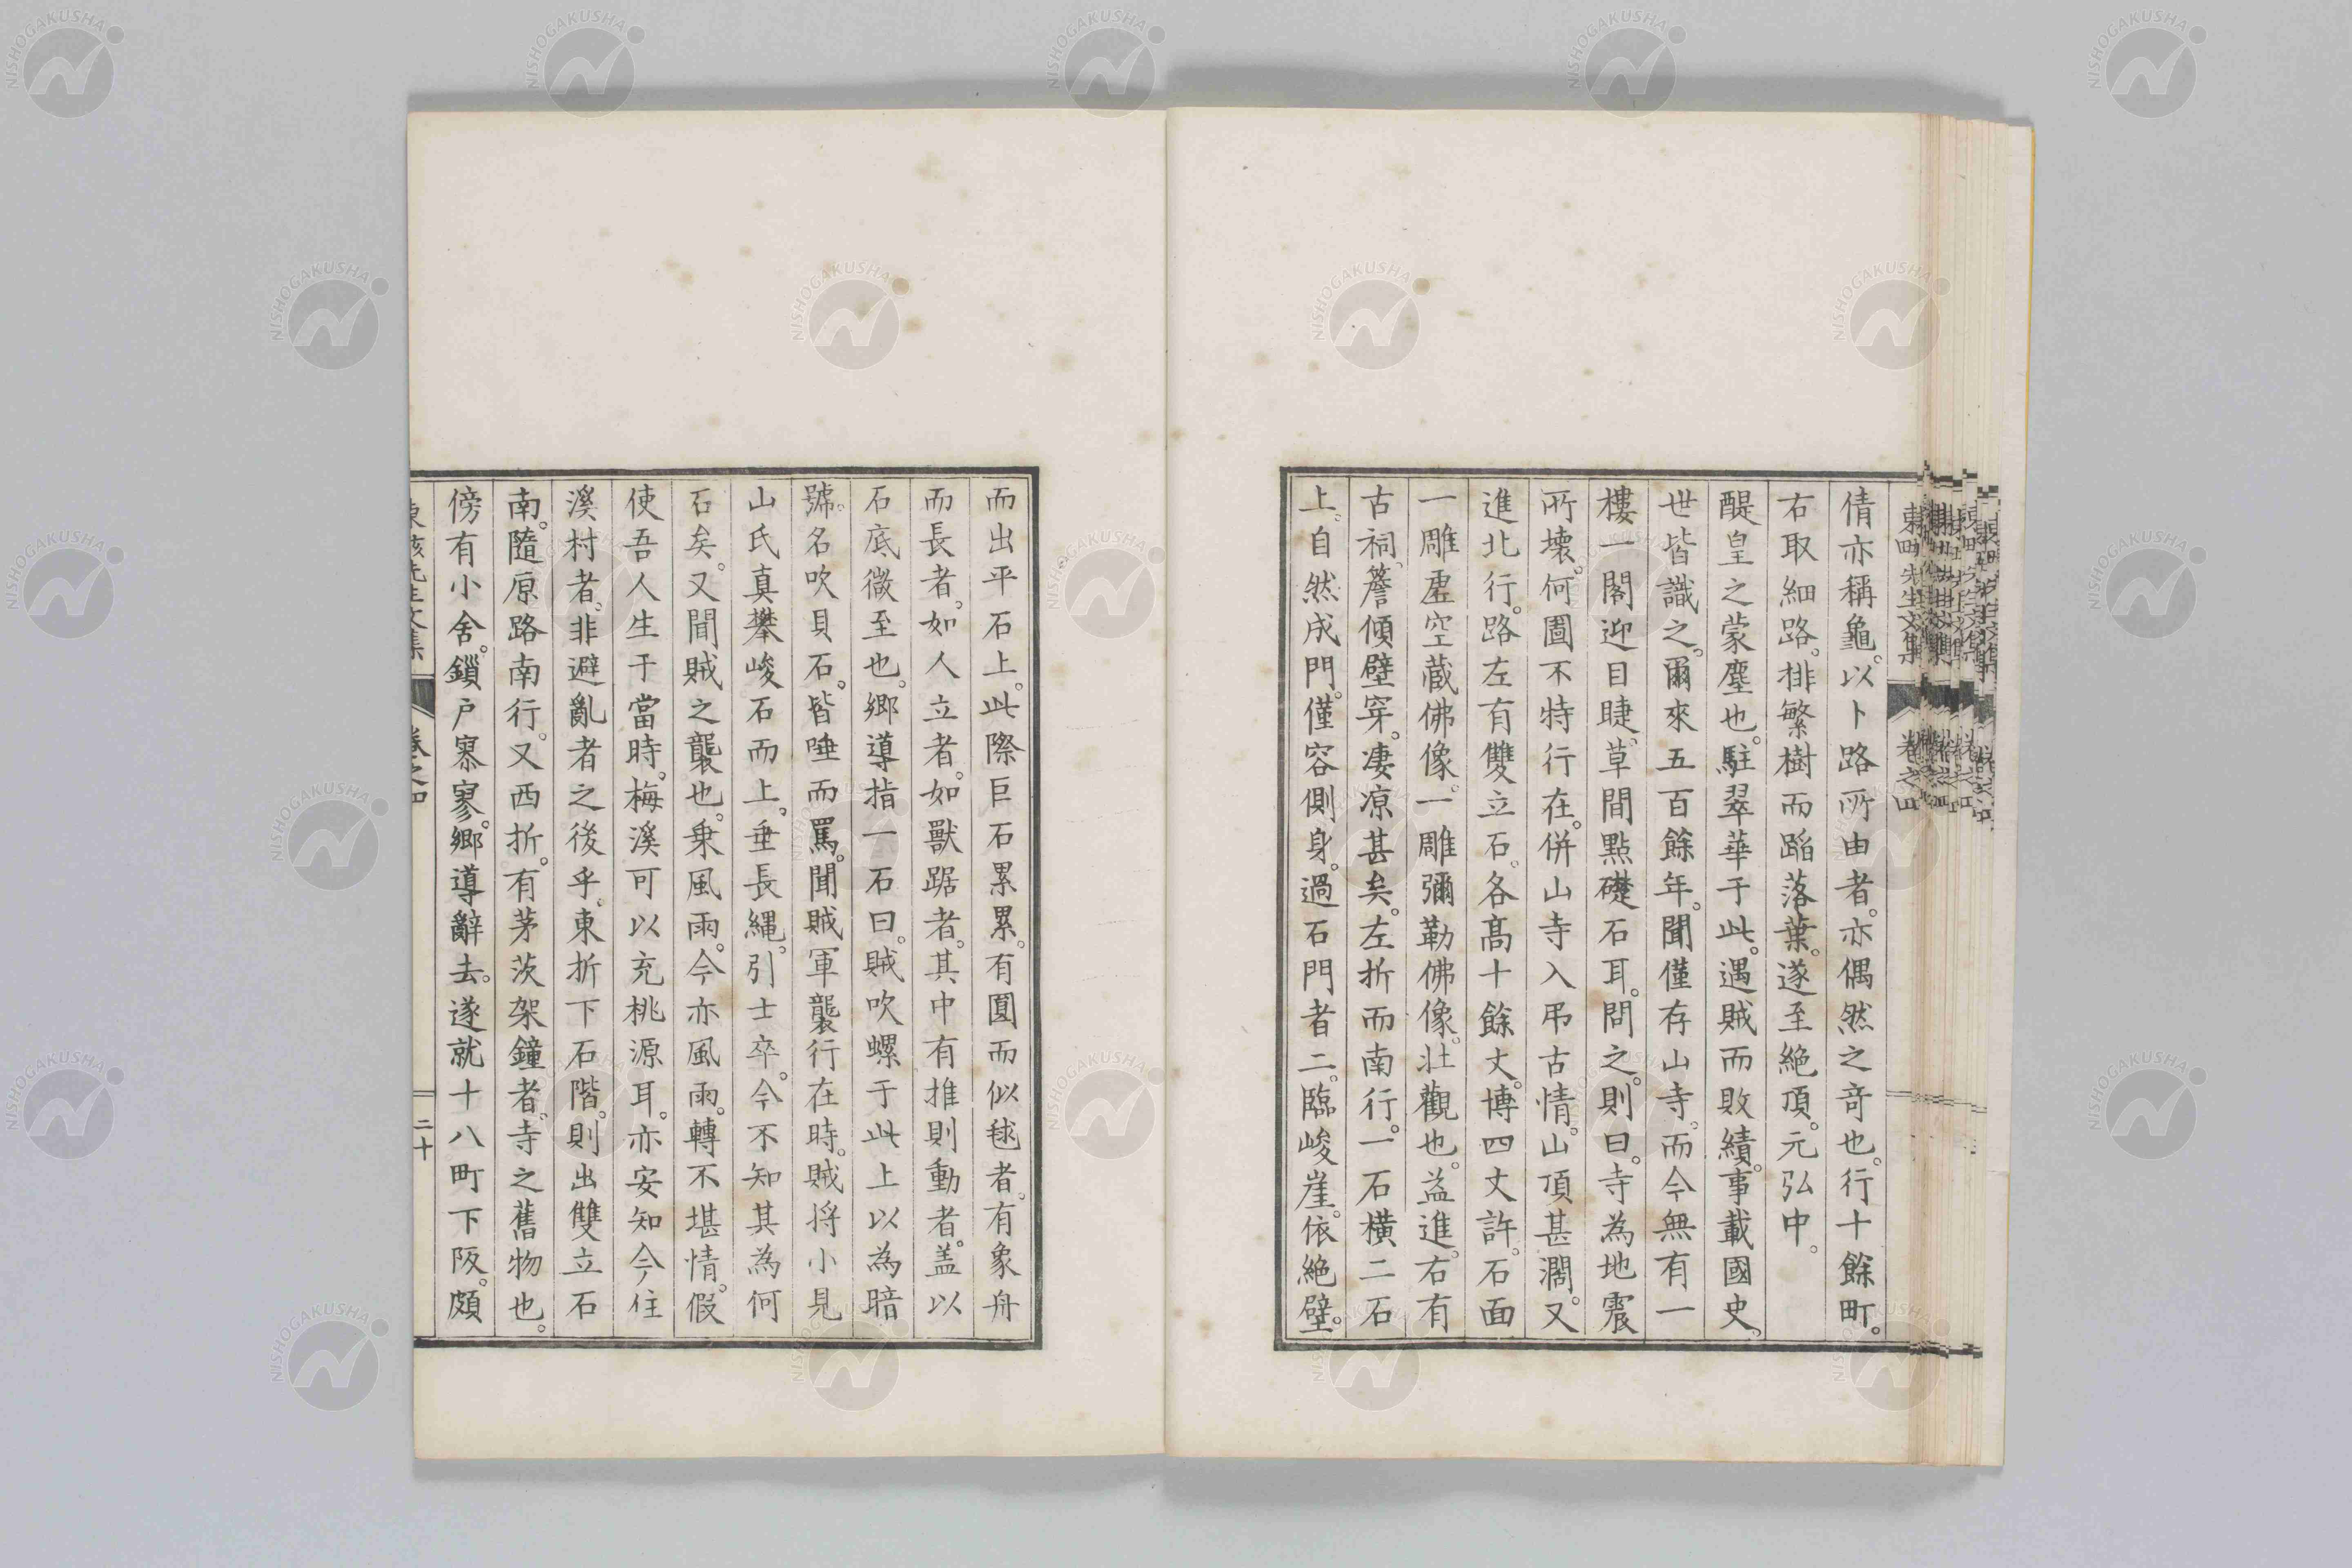 倩亦稱龜。以卜路所由者。亦偶然之竒也。行十餘町。
右取細路。排繁樹而蹈落葉。遂至絶頂。元弘中。
醍皇之蒙塵也。駐翠華于此。遇賊而敗績。事載國史、
世皆識之。爾來五百餘年。聞僅存山寺。而今無有一
樓一閣迎目睫。草間點礎石耳。問之。則曰。寺為地震
所壞。何圖不特行在。併山寺入吊古情。山頂甚濶。又
進北行。路左有雙立石。各高十餘丈。博四丈許。石面
一雕虛空藏佛像。一雕彌勒佛像。壮觀也。益進。右有
古祠。簷傾壁穿。凄凉甚矣。左折而南行。一石横二石
上。自然成門。僅容側身。過石門者二。臨峻崖。依絶壁。
而出平石上。此際巨石累累。有圓而似毬者。有象舟
而長者。如人立者。如獸踞者。其中有推則動者。盖以
石底微至也。鄉導指一石曰。賊吹螺于此上以為暗
號。名吹貝石。皆唾而罵。聞賊軍襲行在時。賊将小見
山氏真攀峻石而上。垂長縄。引士卒。今不知其為何
石矣。又聞賊之襲也。乗風雨。今亦風雨。轉不堪情。假
使吾人生于當時。梅溪可以充桃源耳。亦安知今住
溪村者。非避亂者之後乎。東折下石階。則出雙立石
南。隨原路南行。又西折。有茅茨架鐘者。寺之舊物也。
傍有小舍。鎖户寥寥。鄉導辭去。遂就十八町下阪。頗
先生文集
卷之四
二十
東
先生文集
卷之四
NISHOGAKUSHA